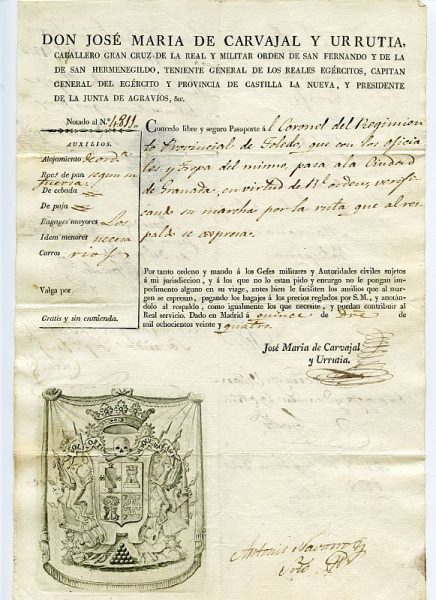 DON JOSÉ MARIA DE CARVAJAL Y URRUTIA,
CABALLERO GRAN CRUZ DE LA REAL Y MILITAR ORDEN DE SAN FERNANDO Y DE LA
DE SAN HERMENEGILDO, TENIENTE GENERAL DE LOS REALES EGÉRCITOS, CAPITAN
GENERAL DEL EGÉRCITO Y PROVINCIA DE CASTILLA LA NUEVA, Y PRESIDENTE
DE LA JUNTA DE AGRAVIOS, &c.
Notado al N.º 4811.
AUXILIOS.
Alojamiento de ord.ª
R.es de pan segun su
fuerza
De cebada
De paja
Bagages mayores Los
Idem menores necesa
Carros rios
Valga por
Gratis y sin enmienda.
Concedo libre y seguro Pasaporte á l Coronel del Regimien
to Provincial de Toledo, que con los oficia
les y Tropa del mismo, pasa ala Ciudad
de Granada, en virtud de Rl orden, verifi
cando su marcha por la ruta que al res
paldo se espresa.
Por tanto ordeno y mando á los Gefes militares y Autoridades civiles sujetos
á mi jurisdiccion, y á los que no lo estan pido y encargo no le pongan im-
pedimento alguno en su viage, antes bien le faciliten los auxilios que al mar-
gen se espresan, pagando los bagajes á los precios reglados por S.M., y anotán-
dolo al respaldo, como igualmente los que necesite, y puedan contribuir al
Real servicio. Dado en Madrid á quince de Dre
de mil ochocientos veinte y
quatro.
José Maria de Carvajal
y Urrutia.
Antonio Navarro
Srio